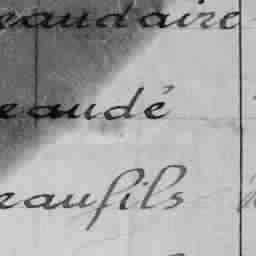 eaudaire
eaudé
eaufils